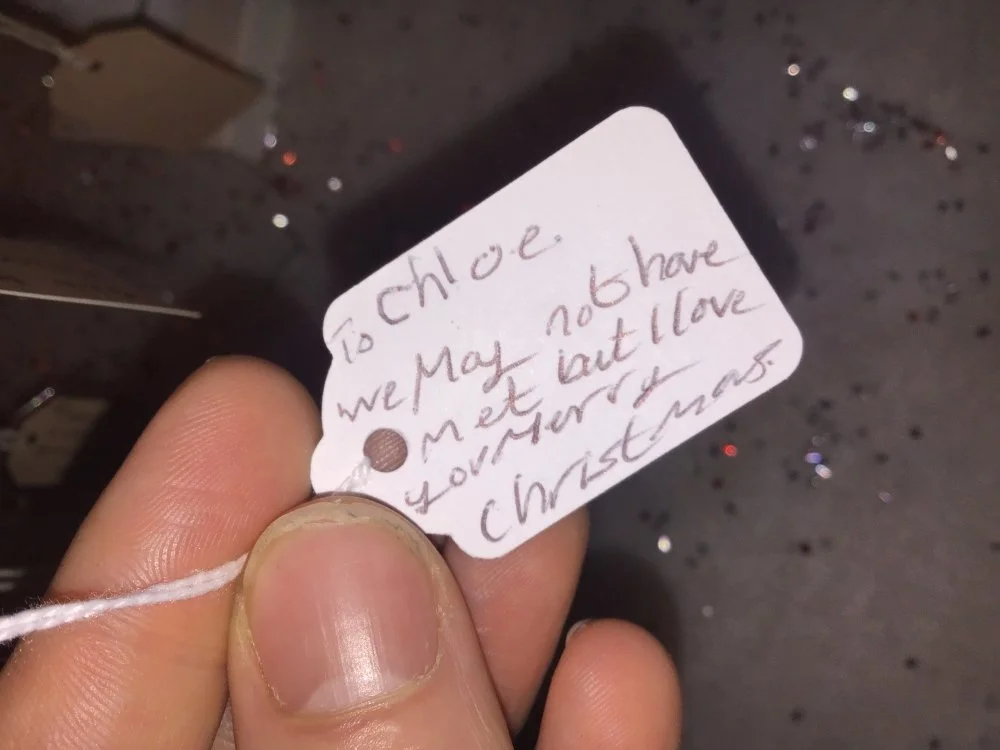 To Chloe.
we May not have
met but I love
you Merry
Christmas.